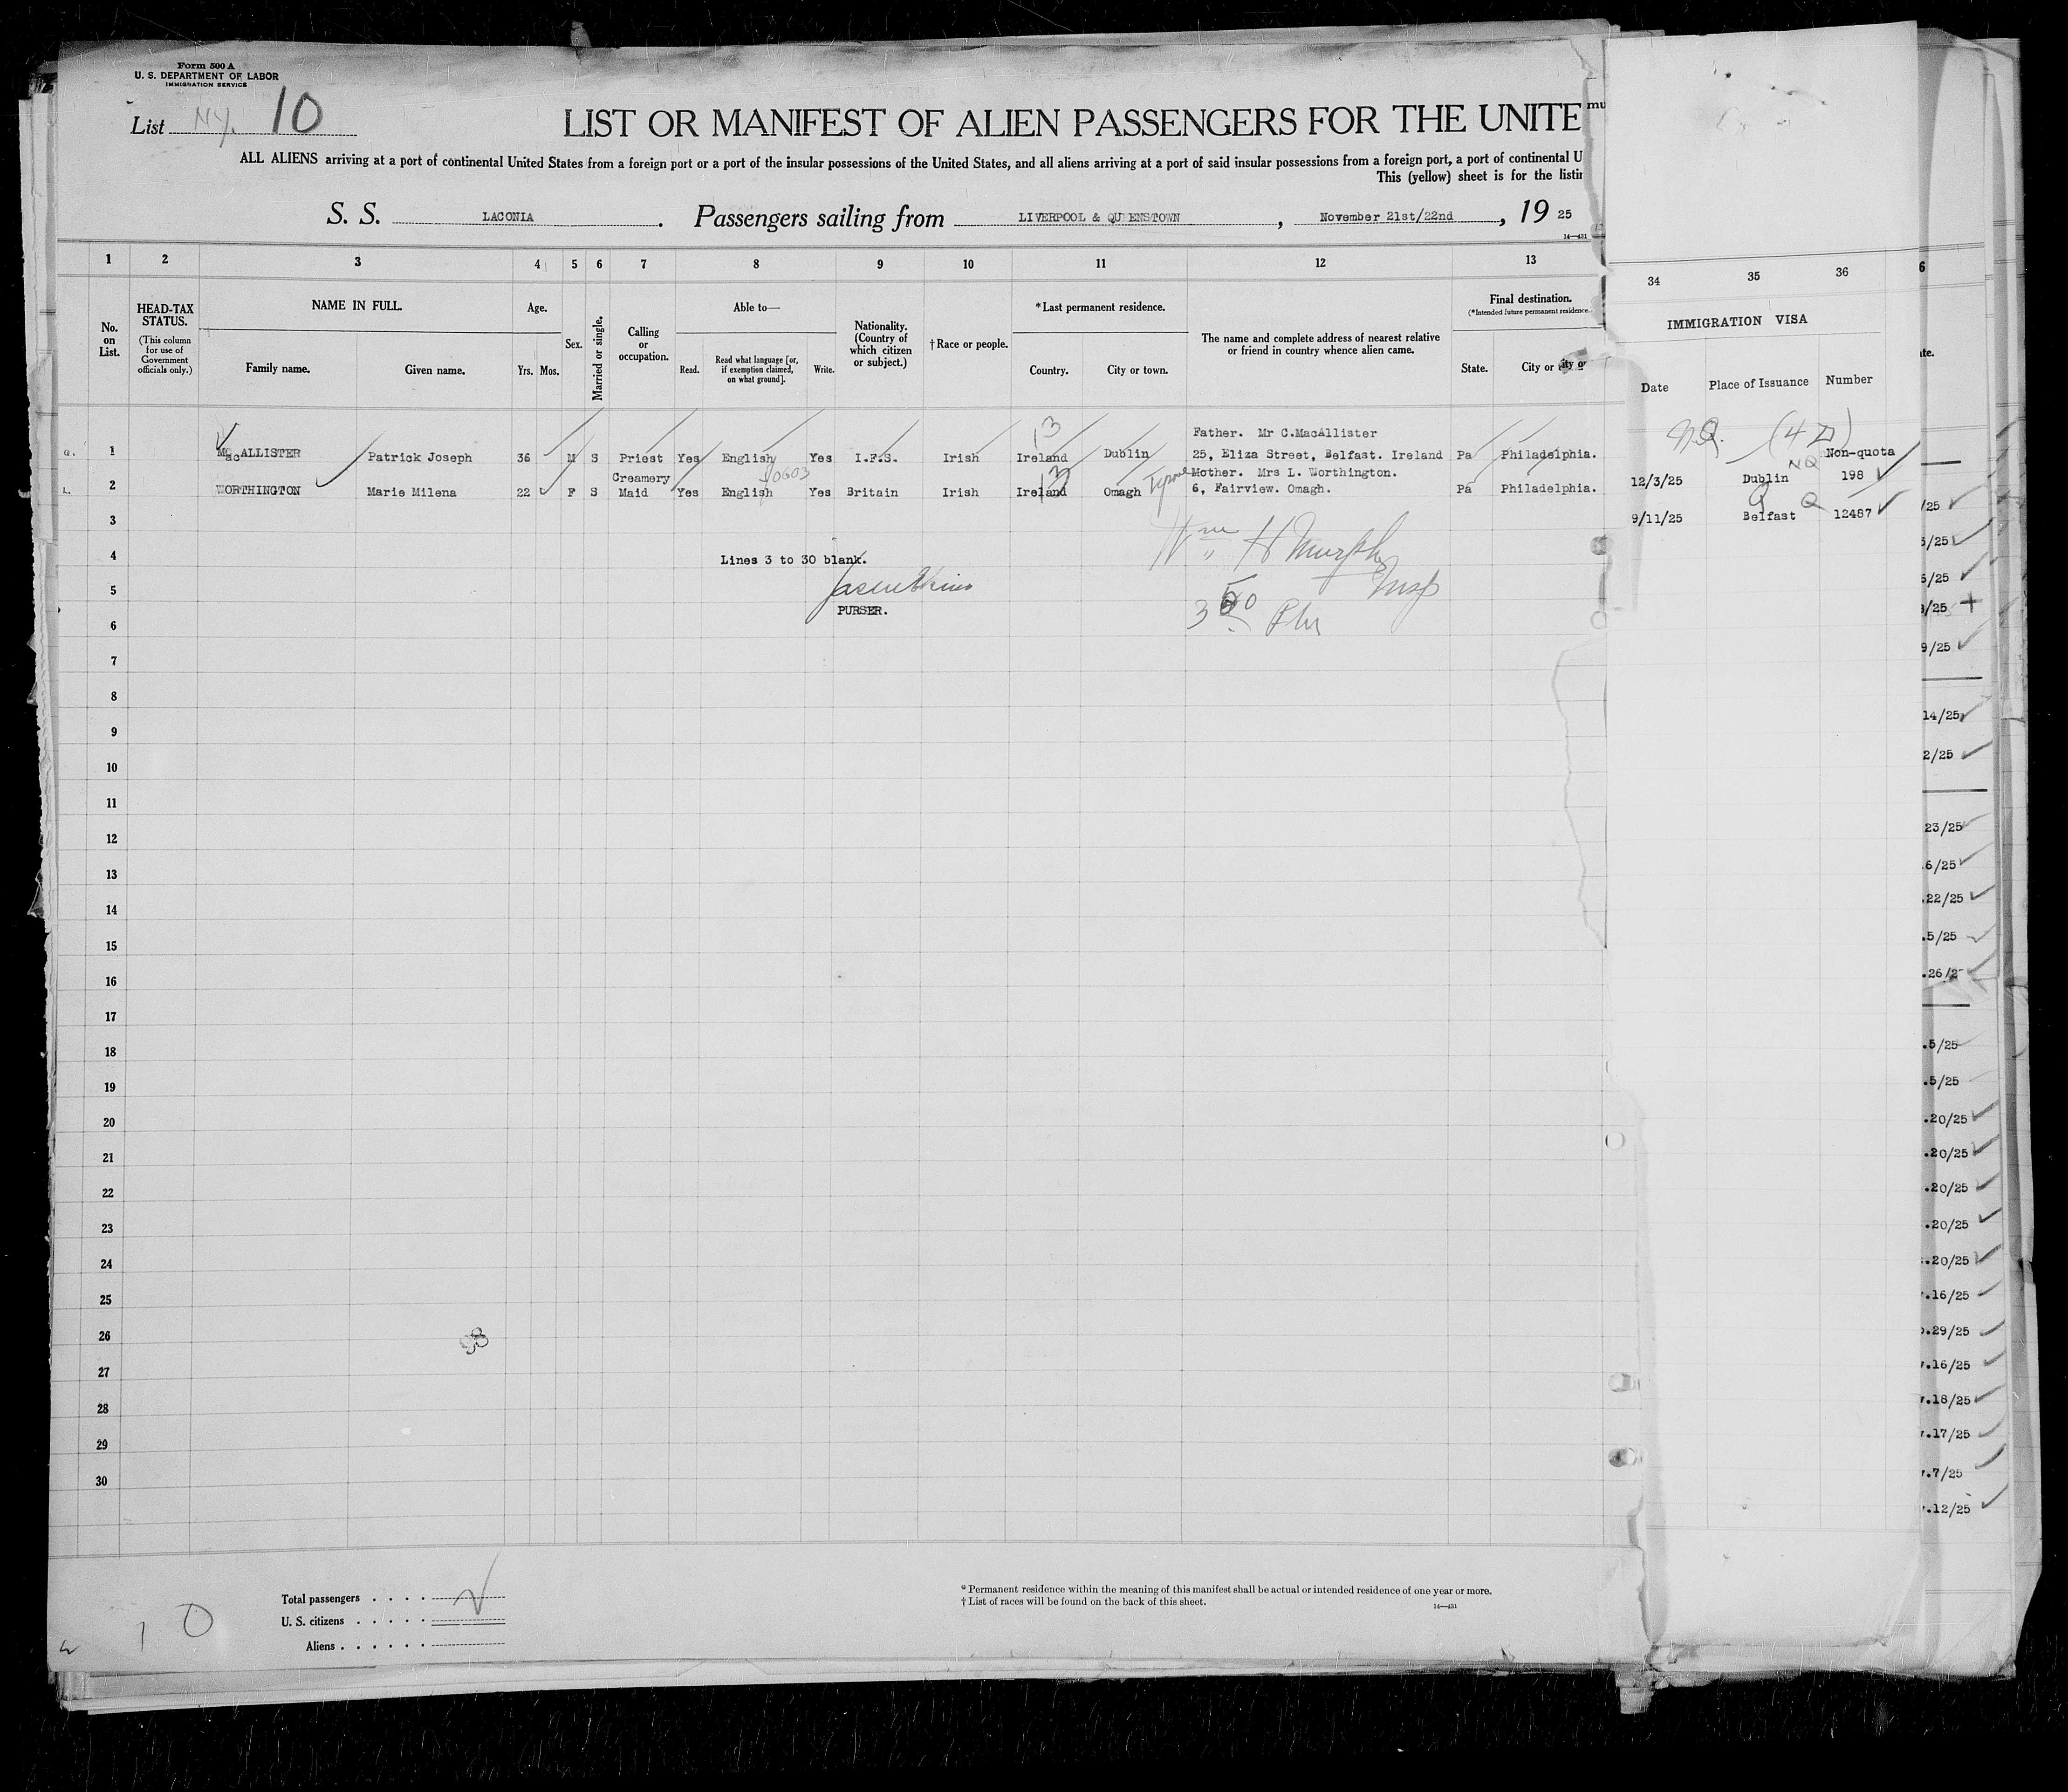 Form 500 A
U. S. DEPARTMENT OF LABOR
IMMIGRATION SERVICE
List NY. 10
LIST OR MANIFEST OF ALIEN PASSENGERS FOR THE UNITE
ALL ALIENS arriving at a port of continental United States from a foreign port or a port of the insular possessions of the United States, and all aliens arriving at a port of said insular possessions from a foreign port, a port of continental U
This (yellow) sheet is for the listin
S. S. LACONIA. Passengers sailing from LIVERPOOL & QUEENSTOWN, November 21st/22nd, 19 25
14—431
1 2 3 4 5 6 7 8 9 10 11 12 13 34 35 36
No. on List.
HEAD-TAX STATUS.
(This column for use of Government officials only.)
NAME IN FULL.
Family name. Given name.
Age.
Yrs. Mos.
Sex.
Married or single.
Calling or occupation.
Able to—
Read. Read what language [or, if exemption claimed, on what ground]. Write.
Nationality. (Country of which citizen or subject.)
† Race or people.
*Last permanent residence.
Country. City or town.
The name and complete address of nearest relative or friend in country whence alien came.
Final destination.
(*Intended future permanent residence.
State. City or
IMMIGRATION VISA
Date Place of Issuance Number
N.Q. (4D)
Q. 1 MacALLISTER Patrick Joseph 36 M S Priest Yes English Yes I.F.S. Irish Ireland Dublin Father. Mr C.MacAllister
25, Eliza Street, Belfast. Ireland Pa Philadelphia.
12/3/25 Dublin NQ Non-quota 198
L. 2 WORTHINGTON Marie Milena 22 F S Creamery Maid Yes English Yes Britain Irish Ireland Omagh Tyrone Mother. Mrs L. Worthington.
6, Fairview. Omagh. Pa Philadelphia.
9/11/25 Belfast Q 12487
3
4 Lines 3 to 30 blank.
Wm H Murphy
Insp
5
PURSER.
6
7
8
9
10
11
12
13
14
15
16
17
18
19
20
21
22
23
24
25
26
27
28
29
30
/25
5/25
9/25
14/25
2/25
23/25
6/25
22/25
.5/25
.5/25
.5/25
.20/25
.20/25
.20/25
.20/25
.20/25
.16/25
.29/25
.16/25
.18/25
.17/25
.7/25
.12/25
Total passengers
U. S. citizens
Aliens
10
* Permanent residence within the meaning of this manifest shall be actual or intended residence of one year or more.
† List of races will be found on the back of this sheet.
14—431